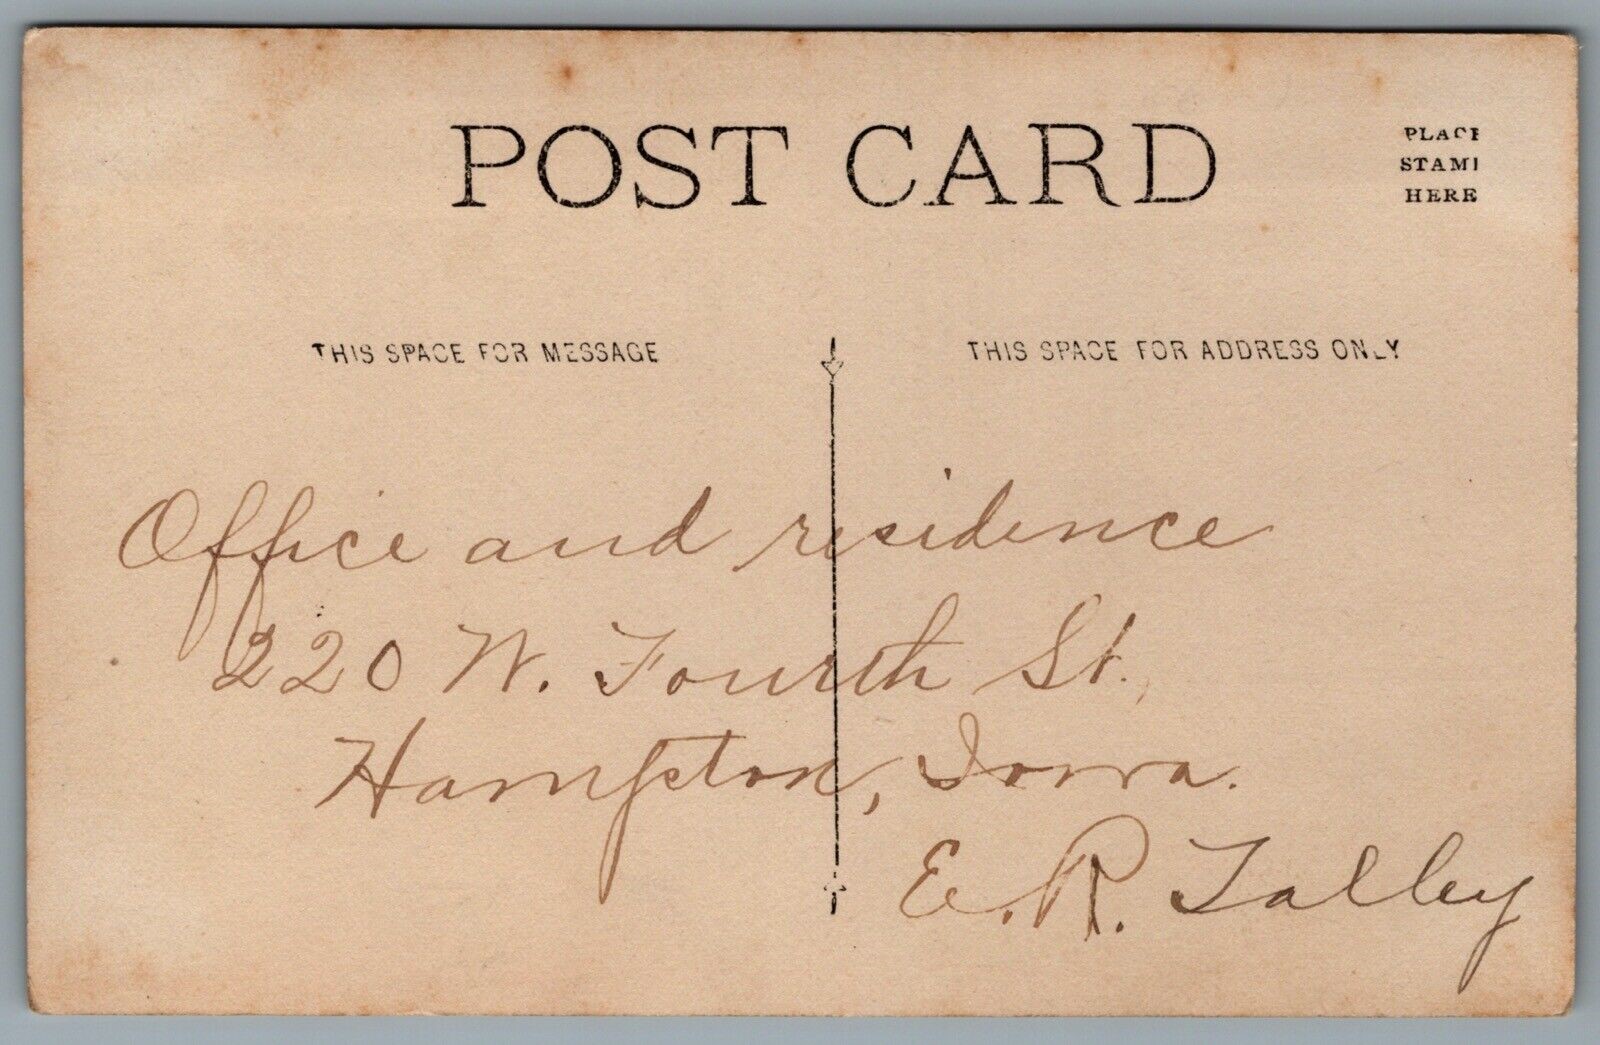 POST CARD
PLACE
STAMP
HERE
THIS SPACE FOR MESSAGE
THIS SPACE FOR ADDRESS ONLY
Office and residence
220 W. Fourth St.
Hampton, Iowa.
E. R. Talley